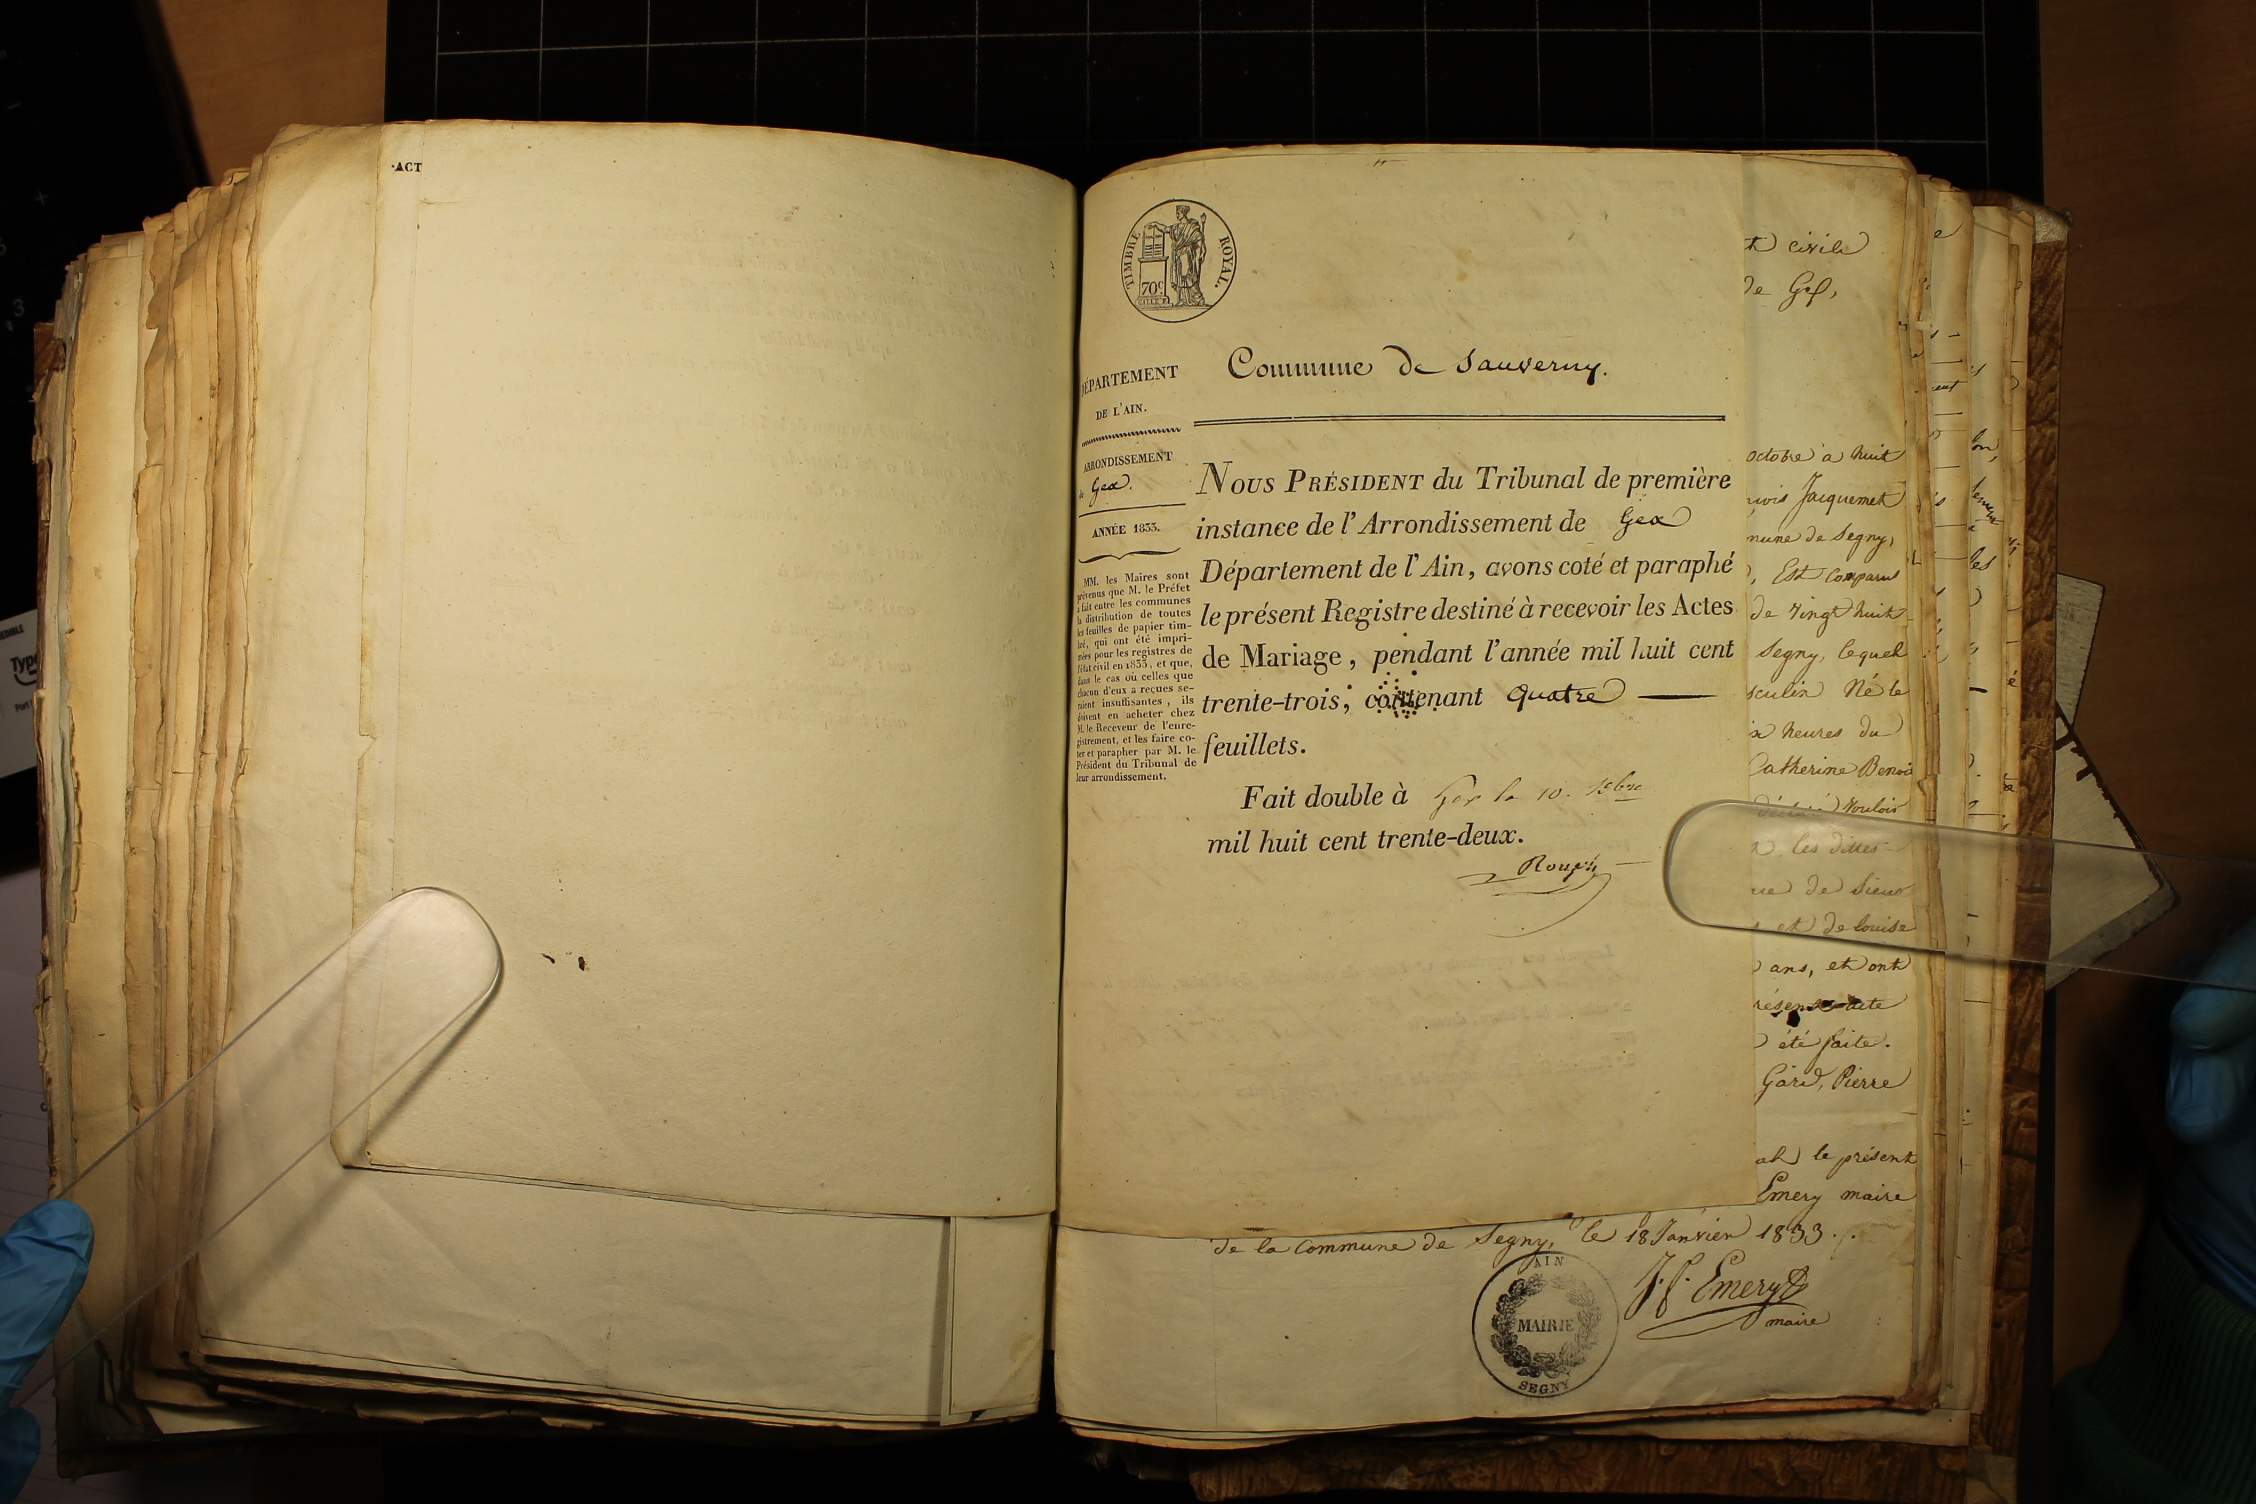 ACT
TIMBRE ROYAL.
70c
Commune de Sauverny.
DÉPARTEMENT
DE L'AIN.
ARRONDISSEMENT
de Gex.
ANNÉE 1833.
MM. les Maires sont
prévenus que M. le Préfet
a fait entre les communes
la distribution de toutes
les feuilles de papier tim-
bré, qui ont été impri-
mées pour les registres de
l'état civil en 1833, et que,
dans le cas où celles que
chacun d'eux a reçues se-
raient insuffisantes, ils
doivent en acheter chez
M. le Receveur de l'enre-
gistrement, et les faire co-
ter et parapher par M. le
Président du Tribunal de
leur arrondissement.
NOUS PRÉSIDENT du Tribunal de première
instance de l'Arrondissement de Gex
Département de l'Ain, avons coté et paraphé
le présent Registre destiné à recevoir les Actes
de Mariage, pendant l'année mil huit cent
trente-trois; contenant quatre
feuillets.
Fait double à Gex le 10.
mil huit cent trente-deux.
civile
de Gex,
octobre à huit
Jacquemet
de Segny,
Est comparu
de vingt huit
Segny, lequel
Né le
heures du
Catherine Benoi
déclaré vouloir
les dites
de Sieur
et de louise
ans, et ont
acte
été faite.
Gard, Pierre
le présent
Emery maire
de la commune de Segny, le 18 Janvier 1833.
J. f. Emery
maire
AIN
MAIRIE
SEGNY